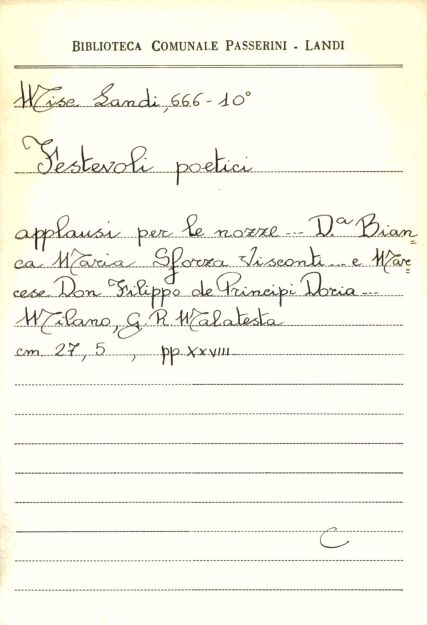 BIBLIOTECA COMUNALE PASSERINI - LANDI
Misc. Landi, 666 - 10°
Festevoli poetici
applausi per le nozze ... D.a Bian=
ca Maria Sforza Visconti ... e Mar=
cese Don Filippo de Principi Doria ...
Milano, G. R. Malatesta
cm. 27, 5 , pp. XXVIII
C